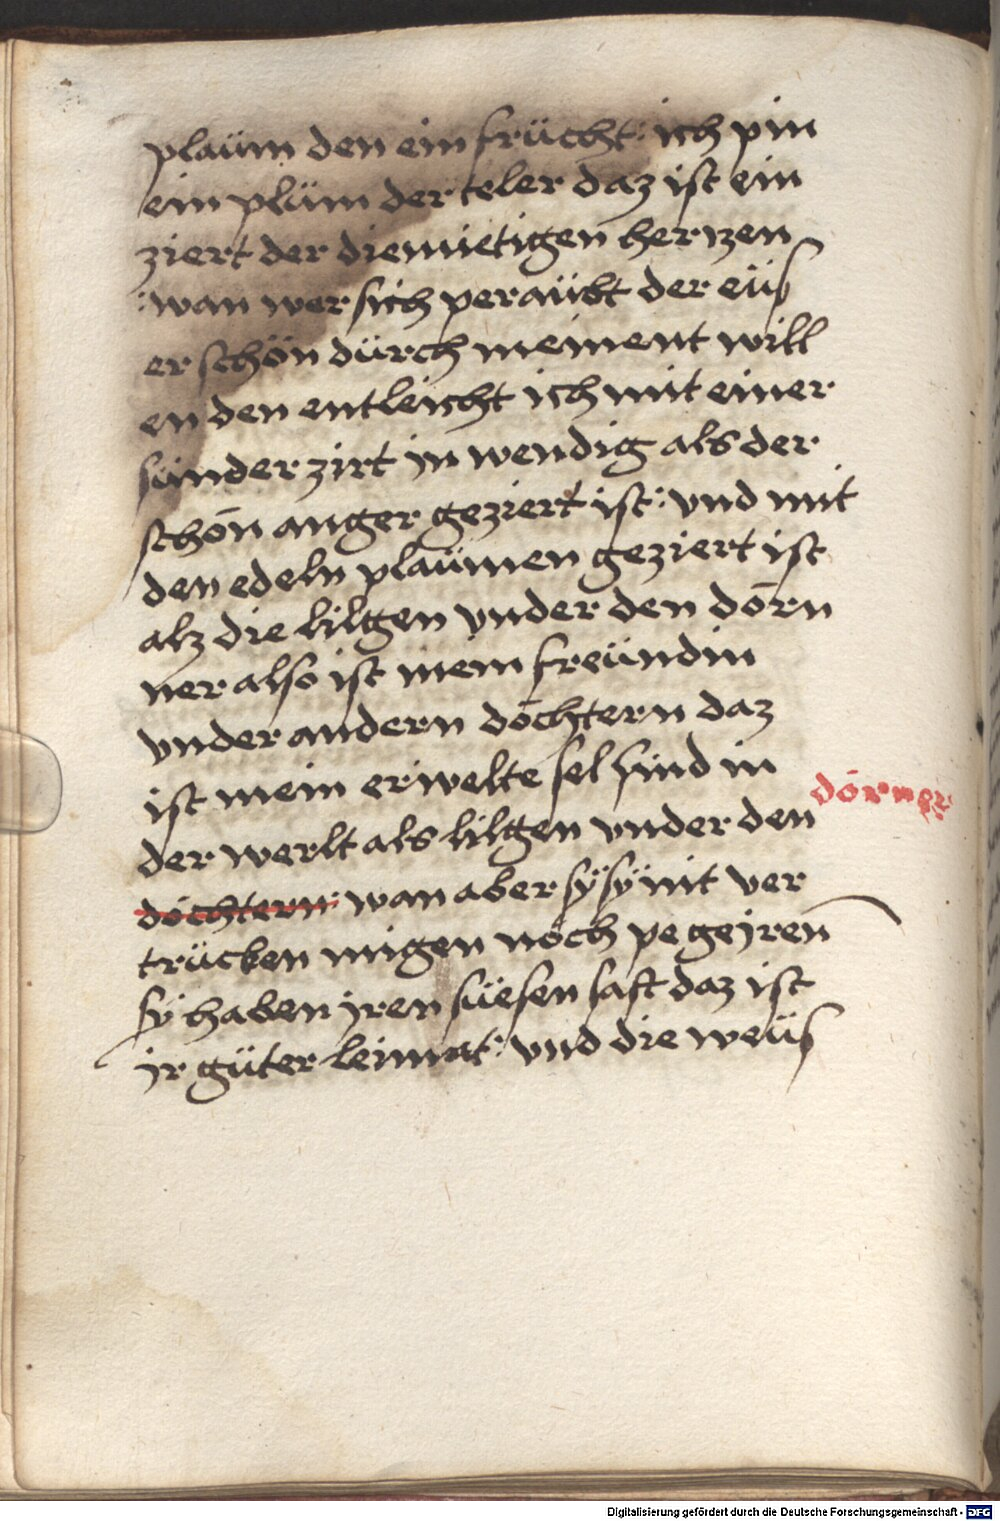 plaüm den ein frücht : ich pin
ein plüm der teler daz ist ein
ziert der diemietigen herczen
: wan wer sich peraübt der eüs
er schön dürch meinent will
en den entleicht ich mit einer
sünder zirt in wendig als der
schön anger geziert ist : vnd mit
den edeln plaümen geziert ist
alz die lilgen vnder den dörn
ner also ist mein freündin
vnder andern döchtern daz
ist mein erwelte sel sind in
der werlt als lilgen vnder den dörner
döchtern : wan aber sÿ sÿ nit ver
trücken migen nöch pe gejren
sÿ haben jren süesen saft daz ist
jr güter leimat : vnd die weüs
Digitalisierung gefördert durch die Deutsche Forschungsgemeinschaft - DFG